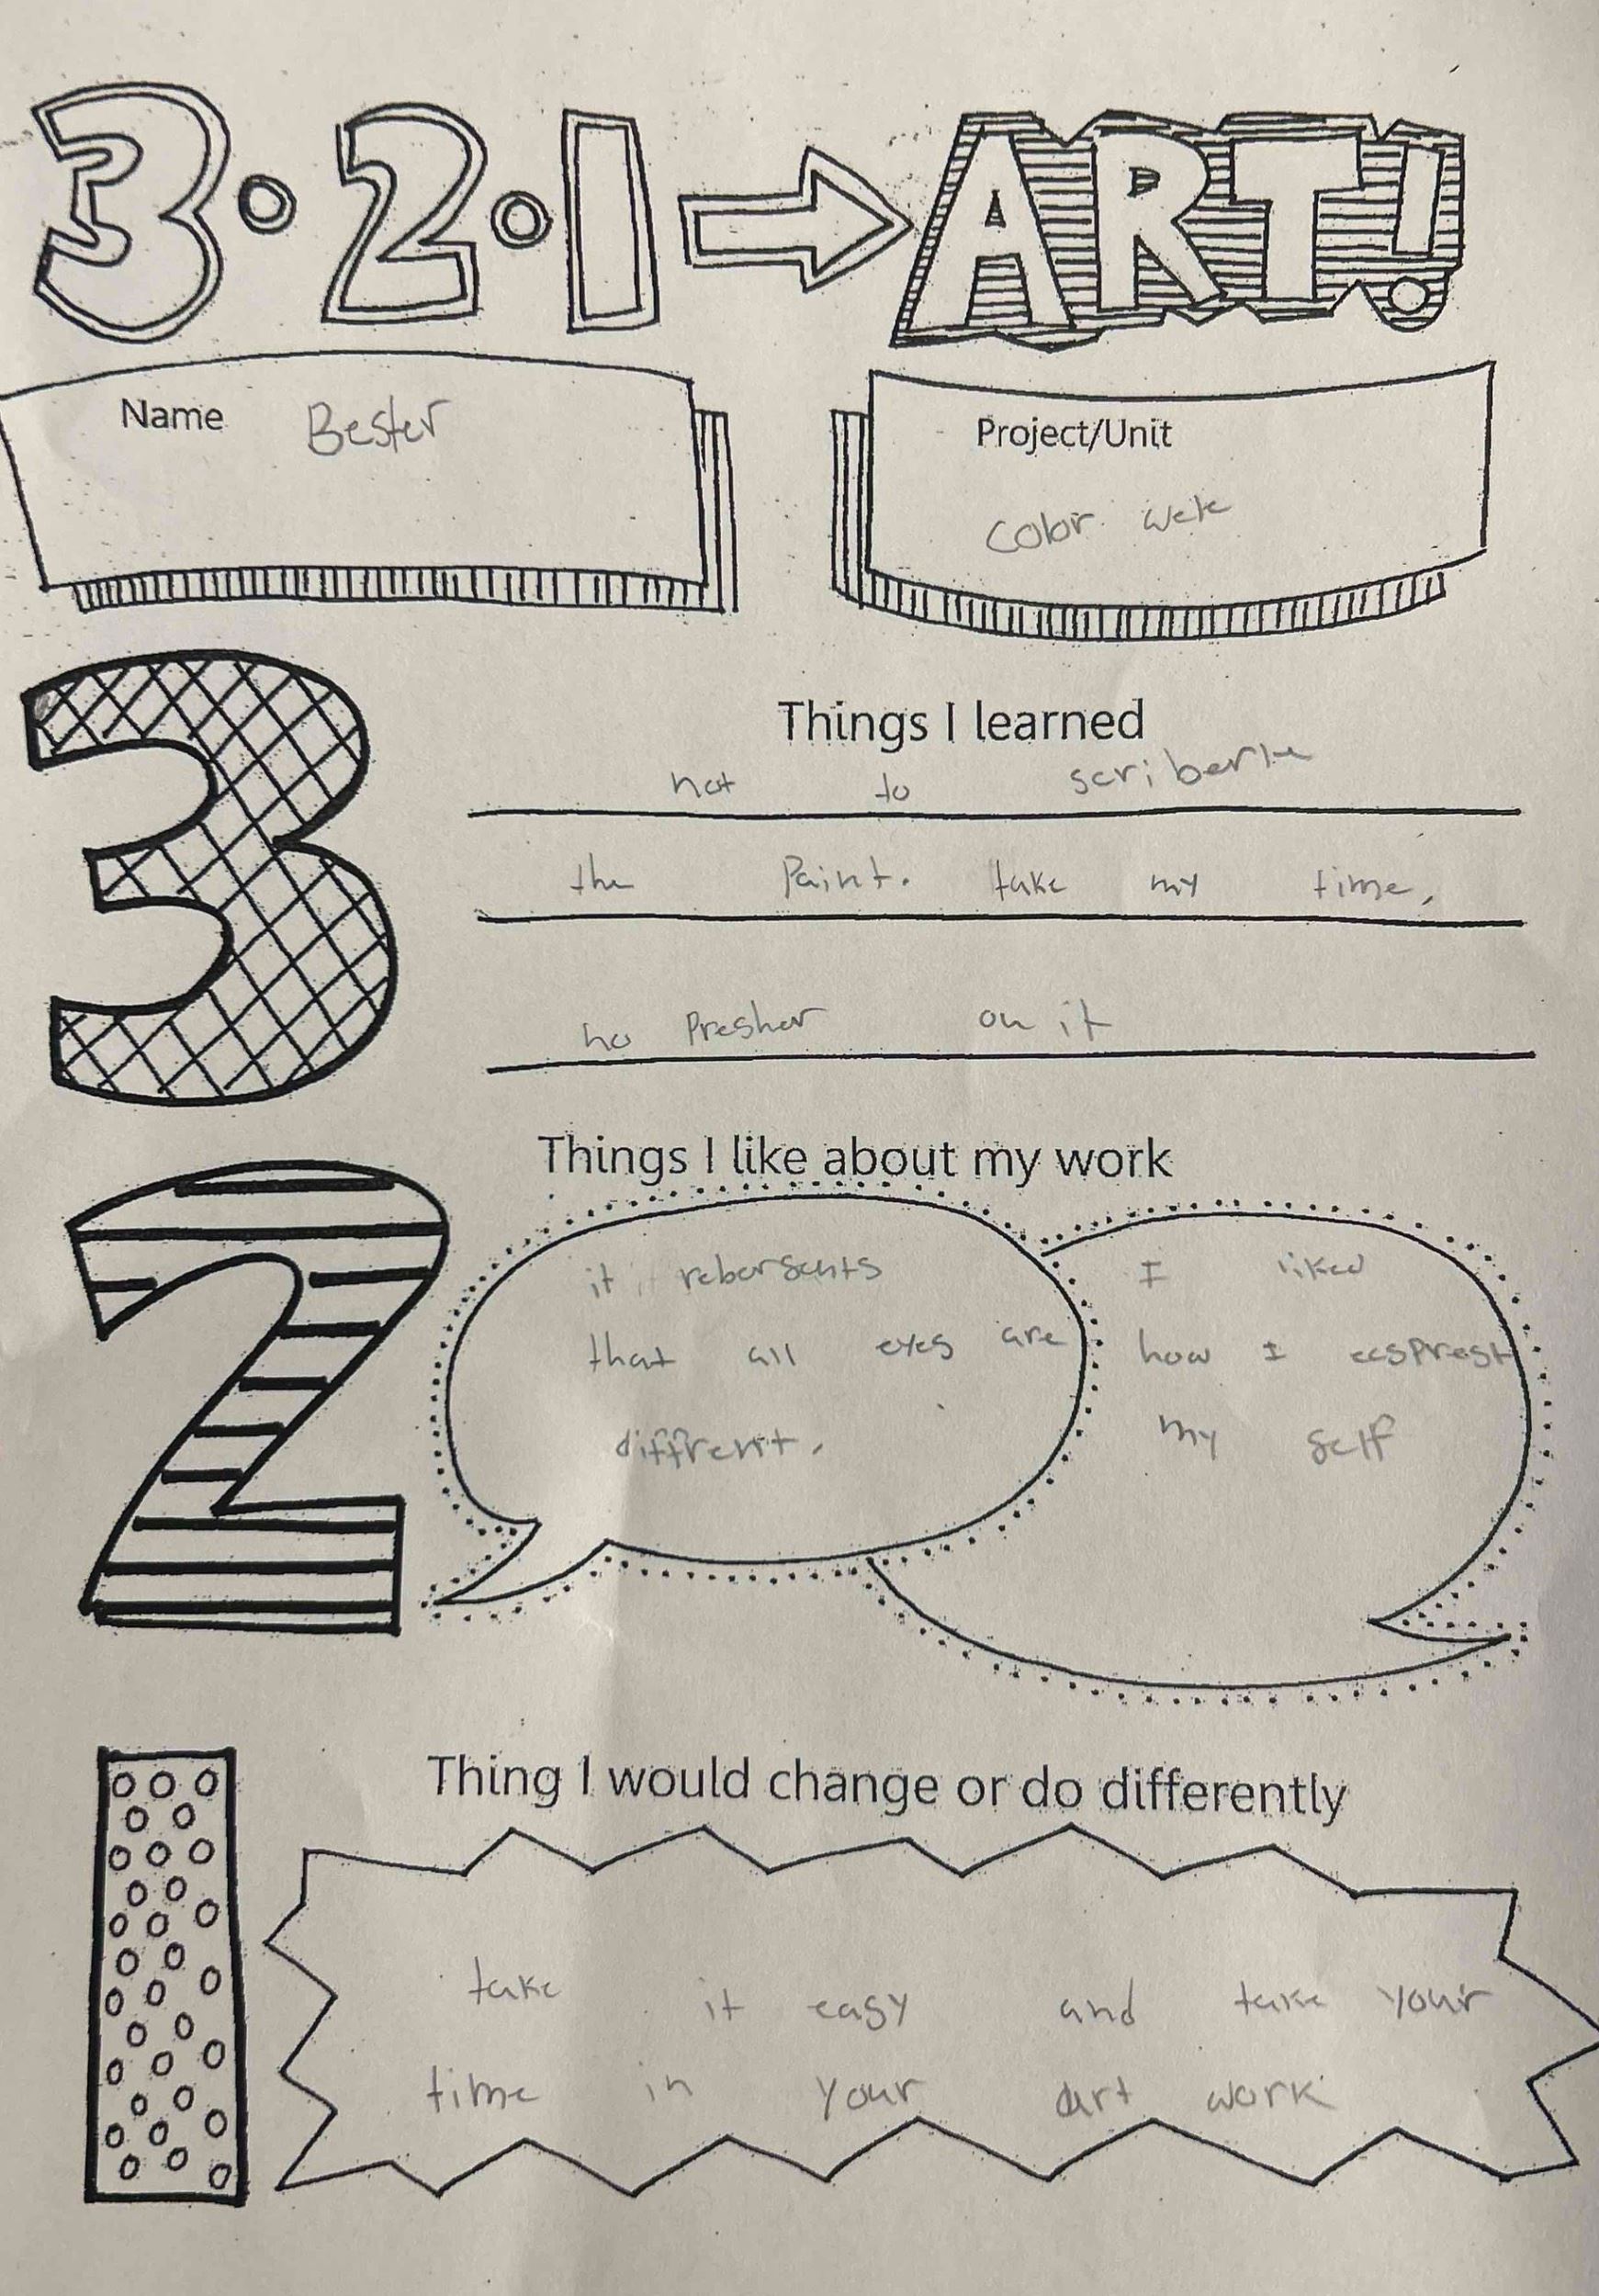 3·2·1 → ART!
Name Bester
Project/Unit
Color wele
3
Things I learned
not to
the Paint. take my time,
no Presher on it
2
Things I like about my work
it rebersents
that all eyes are
diffrent.
I liked
how I ecsprest
my self
1
Thing I would change or do differently
take it easy and take your
time in your art work